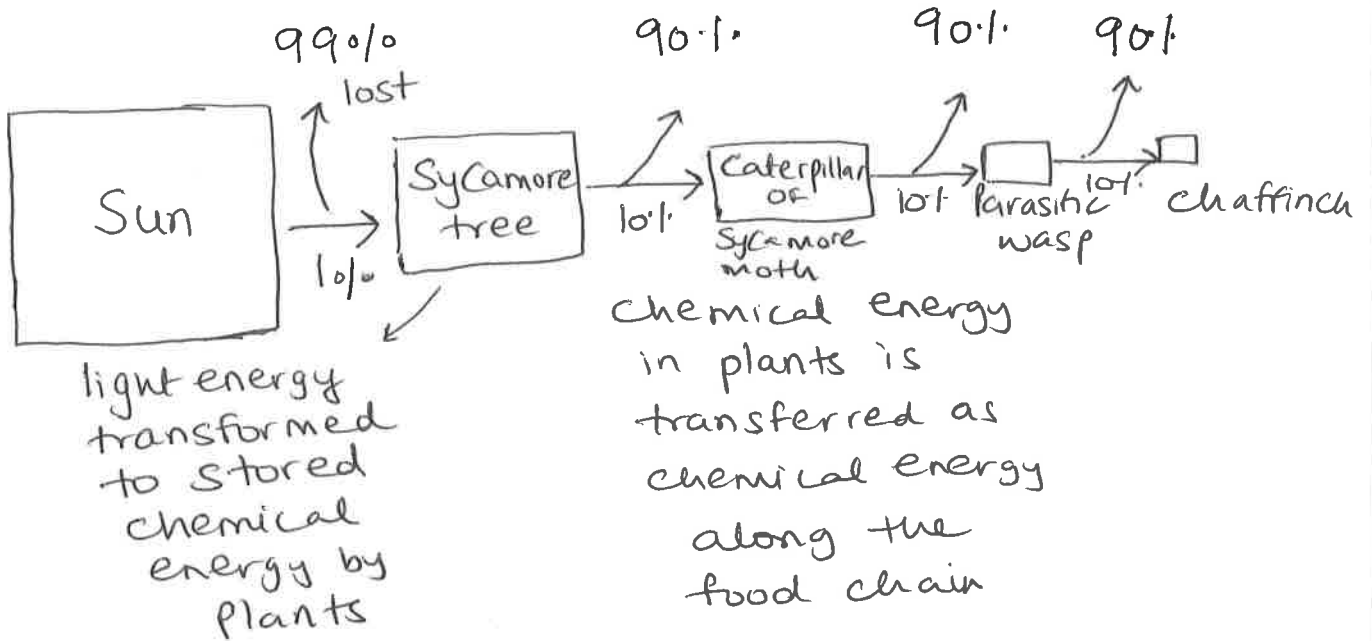 99%
90%
90%
90%
lost
Sun
1%
Sycamore
tree
10%
Caterpillar
of
Sycamore
moth
10%
Parasitic
wasp
10%
Chaffinch
light energy
transformed
to stored
chemical
energy by
plants
Chemical energy
in plants is
transferred as
chemical energy
along the
food chain